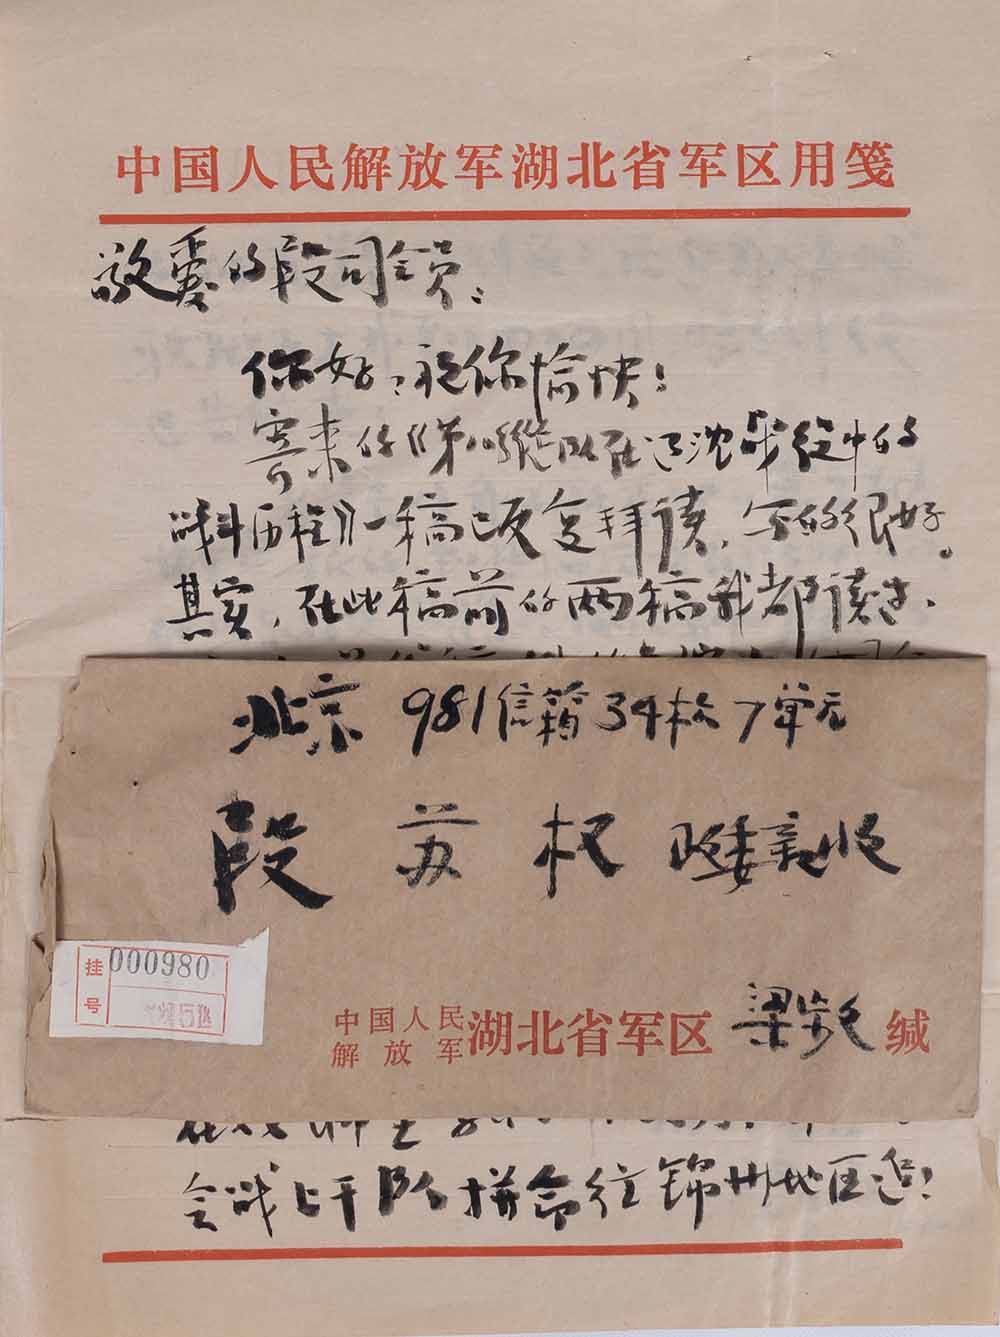 中国人民解放军湖北省军区用笺
敬爱的段司令员：
你好！祝你愉快！
寄来的《第八纵队在辽沈战役中的
战斗历程》一稿已反复拜读，写的很好。
其实，在此稿前的两稿我都读过，
北京981信箱34栋7单元
段苏权政委亲收
挂号
000980
中国人民解放军湖北省军区 梁 缄
会战上千 拼命往锦州地区运！